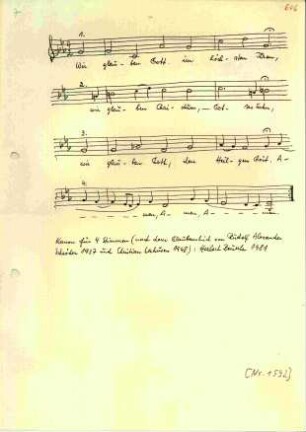 606
1.
Wir glau-ben Gott im höch-sten Thron,
2.
wir glau-ben Chri-stum, Got-
3.
wir glau-ben Gott, den Heil-gen Geist. A-
4.
men, A-men, A-
Kanon für 4 Stimmen (nach dem Glaubenslied von Rudolf Alexander
Schröder 1937 und Christian Lahusen 1948): Herbert 1981
[Nr. 1592]